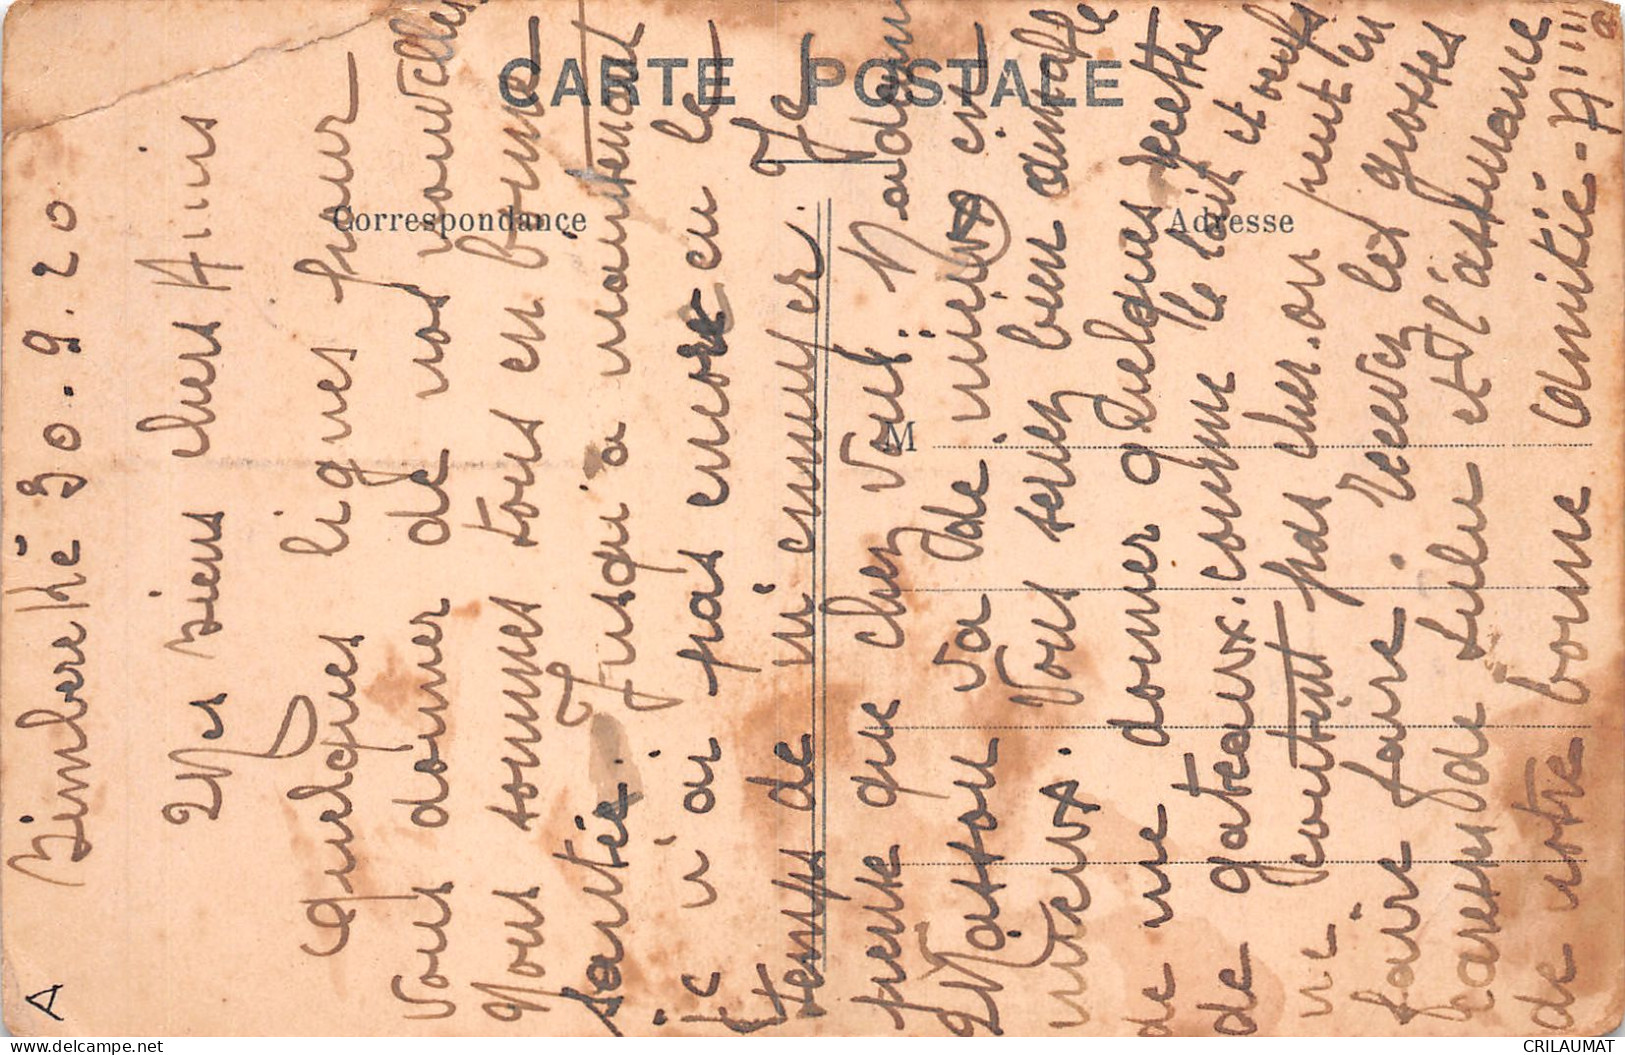 CARTE POSTALE
Correspondance
Adresse
M
A
Bimbereké 30.9.20
Mes biens chers Amis
Quelques lignes pour
vous donner de vos nouvelles
Nous sommes tous en bonne
santée. Jusqu'a maintenant
je n'ai pas encore eu le
temps de m'ennuyer. Je
pense que chez vous. Madame
Masson va de mieux en
mieux. Vous serez bien aimable
de me donner quelques recettes
de gateaux. comme le lait et oeufs
ne coutent pas cher. on peut en
faire faire. Recevez les grosses
de Lulu et l'assurance
de notre bonne amitié -
CRILAUMAT